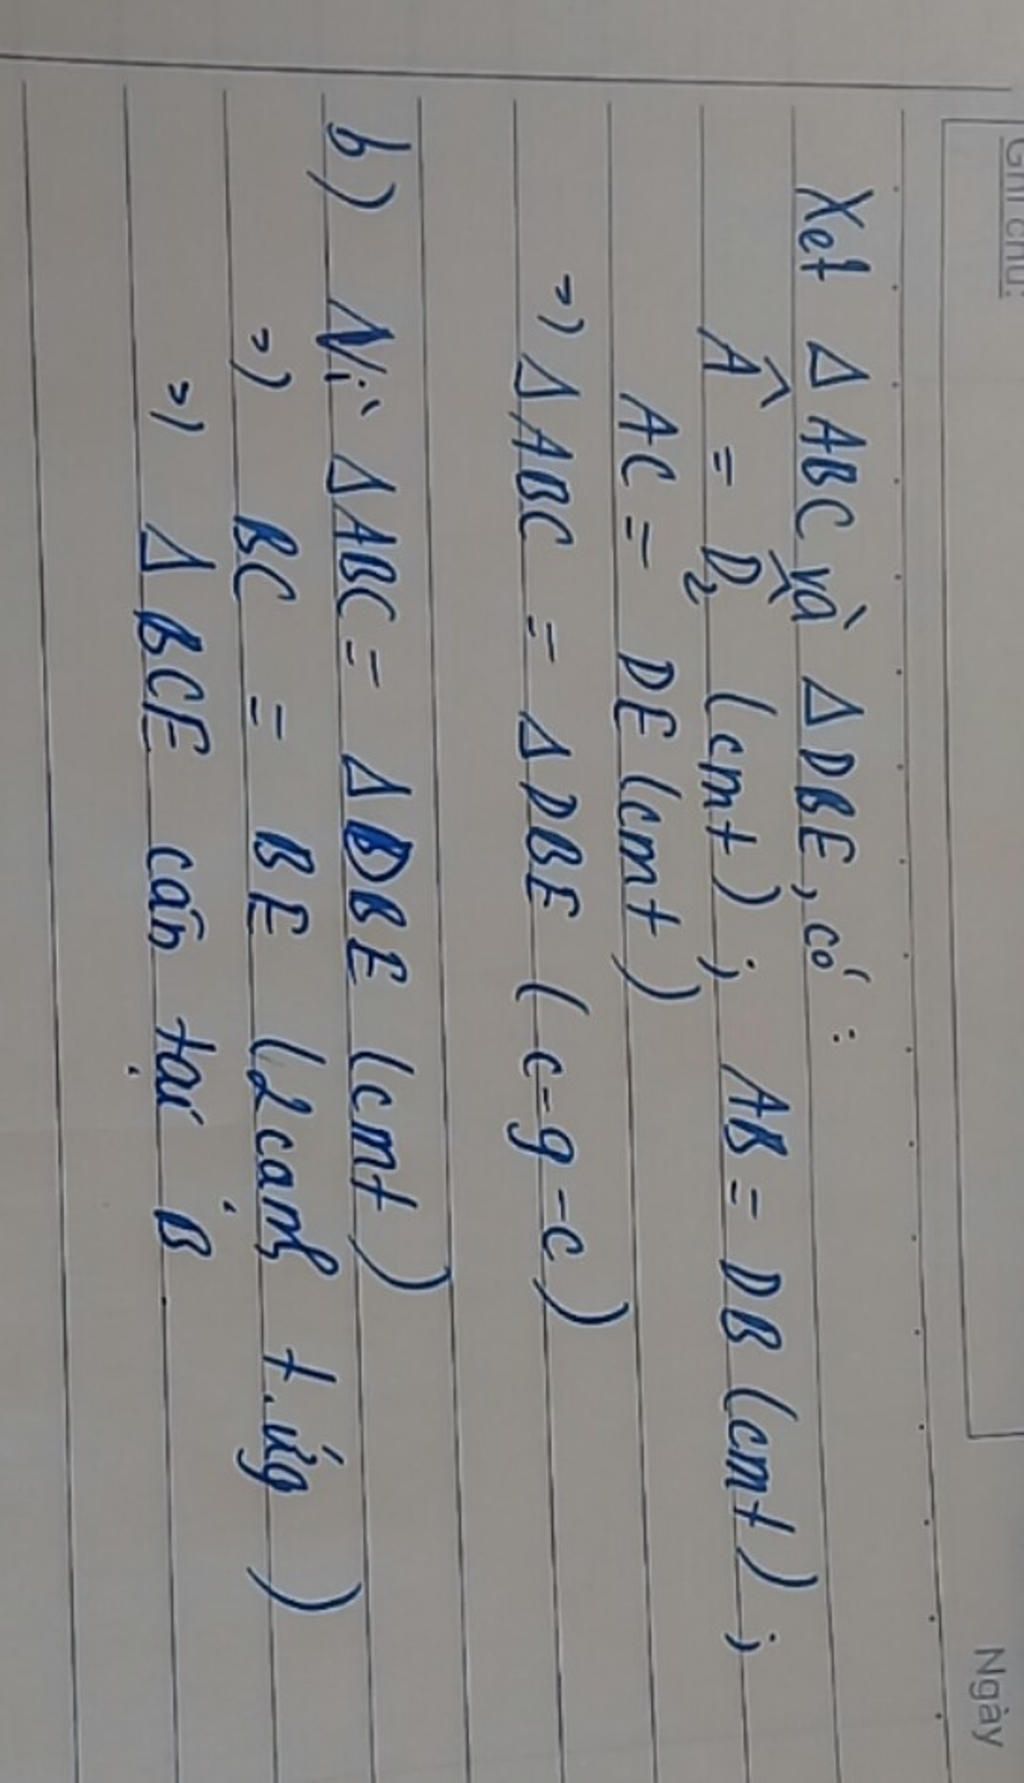 Ghi chú:
Ngày
Xét Δ ABC và Δ DBE, có :
Â = D̂₂ (cmt) ; AB = DB (cmt) ;
AC = DE (cmt)
=> Δ ABC = Δ DBE (c-g-c)
b) Vì Δ ABC = Δ DBE (cmt)
=> BC = BE (2 cạnh t.ứg)
=> Δ BCE cân tại B